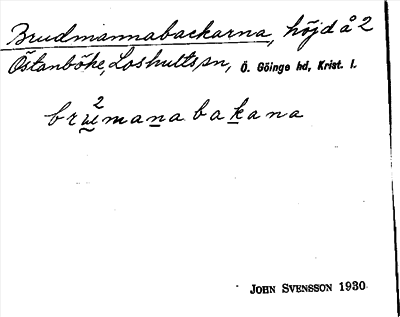 Brudmannabackarna, höjd å 2
Östanböke, Loshults sn, Ö. Göinge hd, Krist. l.
bru²manabakana
JOHN SVENSSON 1930